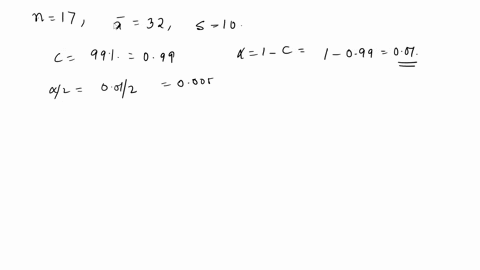 n = 17, x̄ = 32, s = 10.
C = 99%. = 0.99 α = 1 - C = 1 - 0.99 = 0.01.
α/2 = 0.01/2 = 0.005